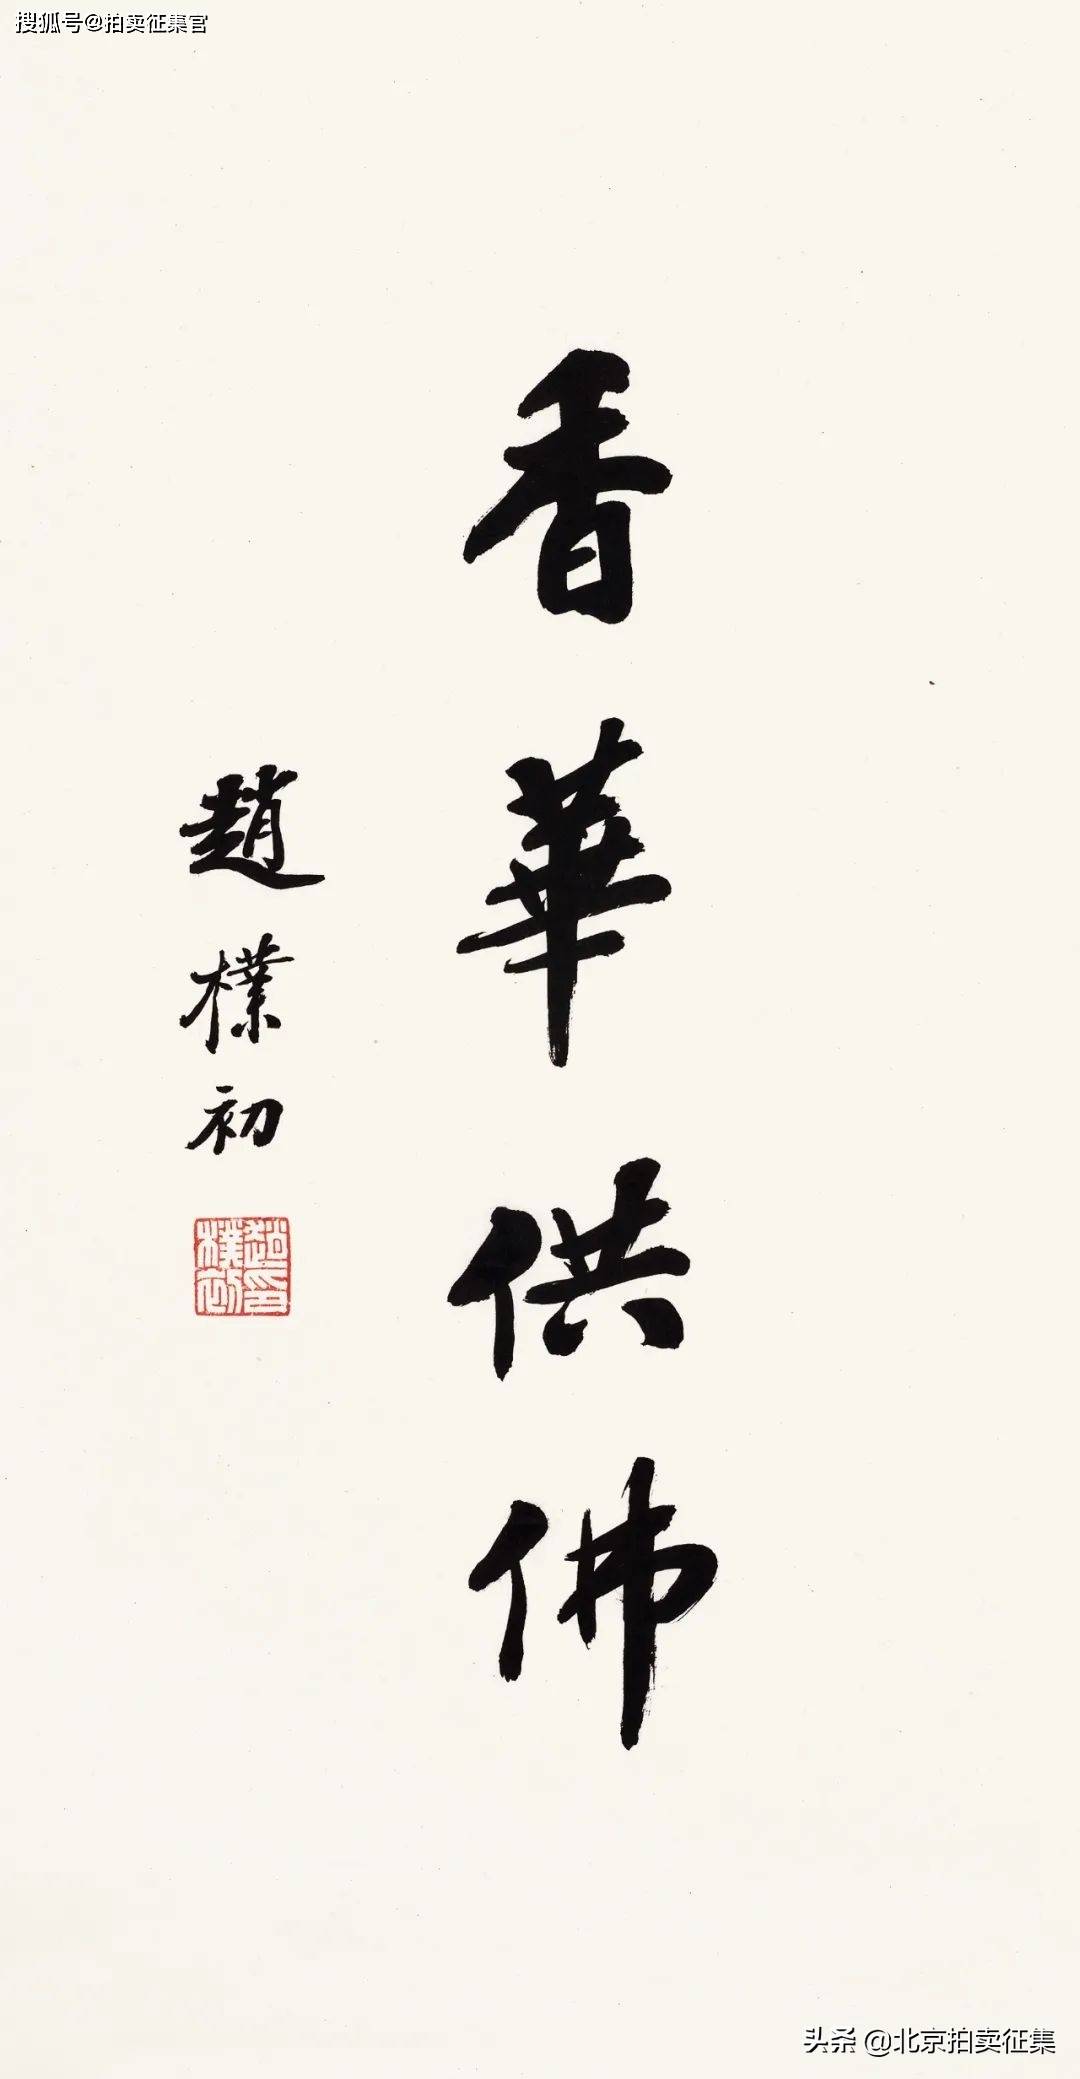 搜狐号@拍卖征集官
香華供佛
趙樸初
趙樸初印
头条 @北京拍卖征集